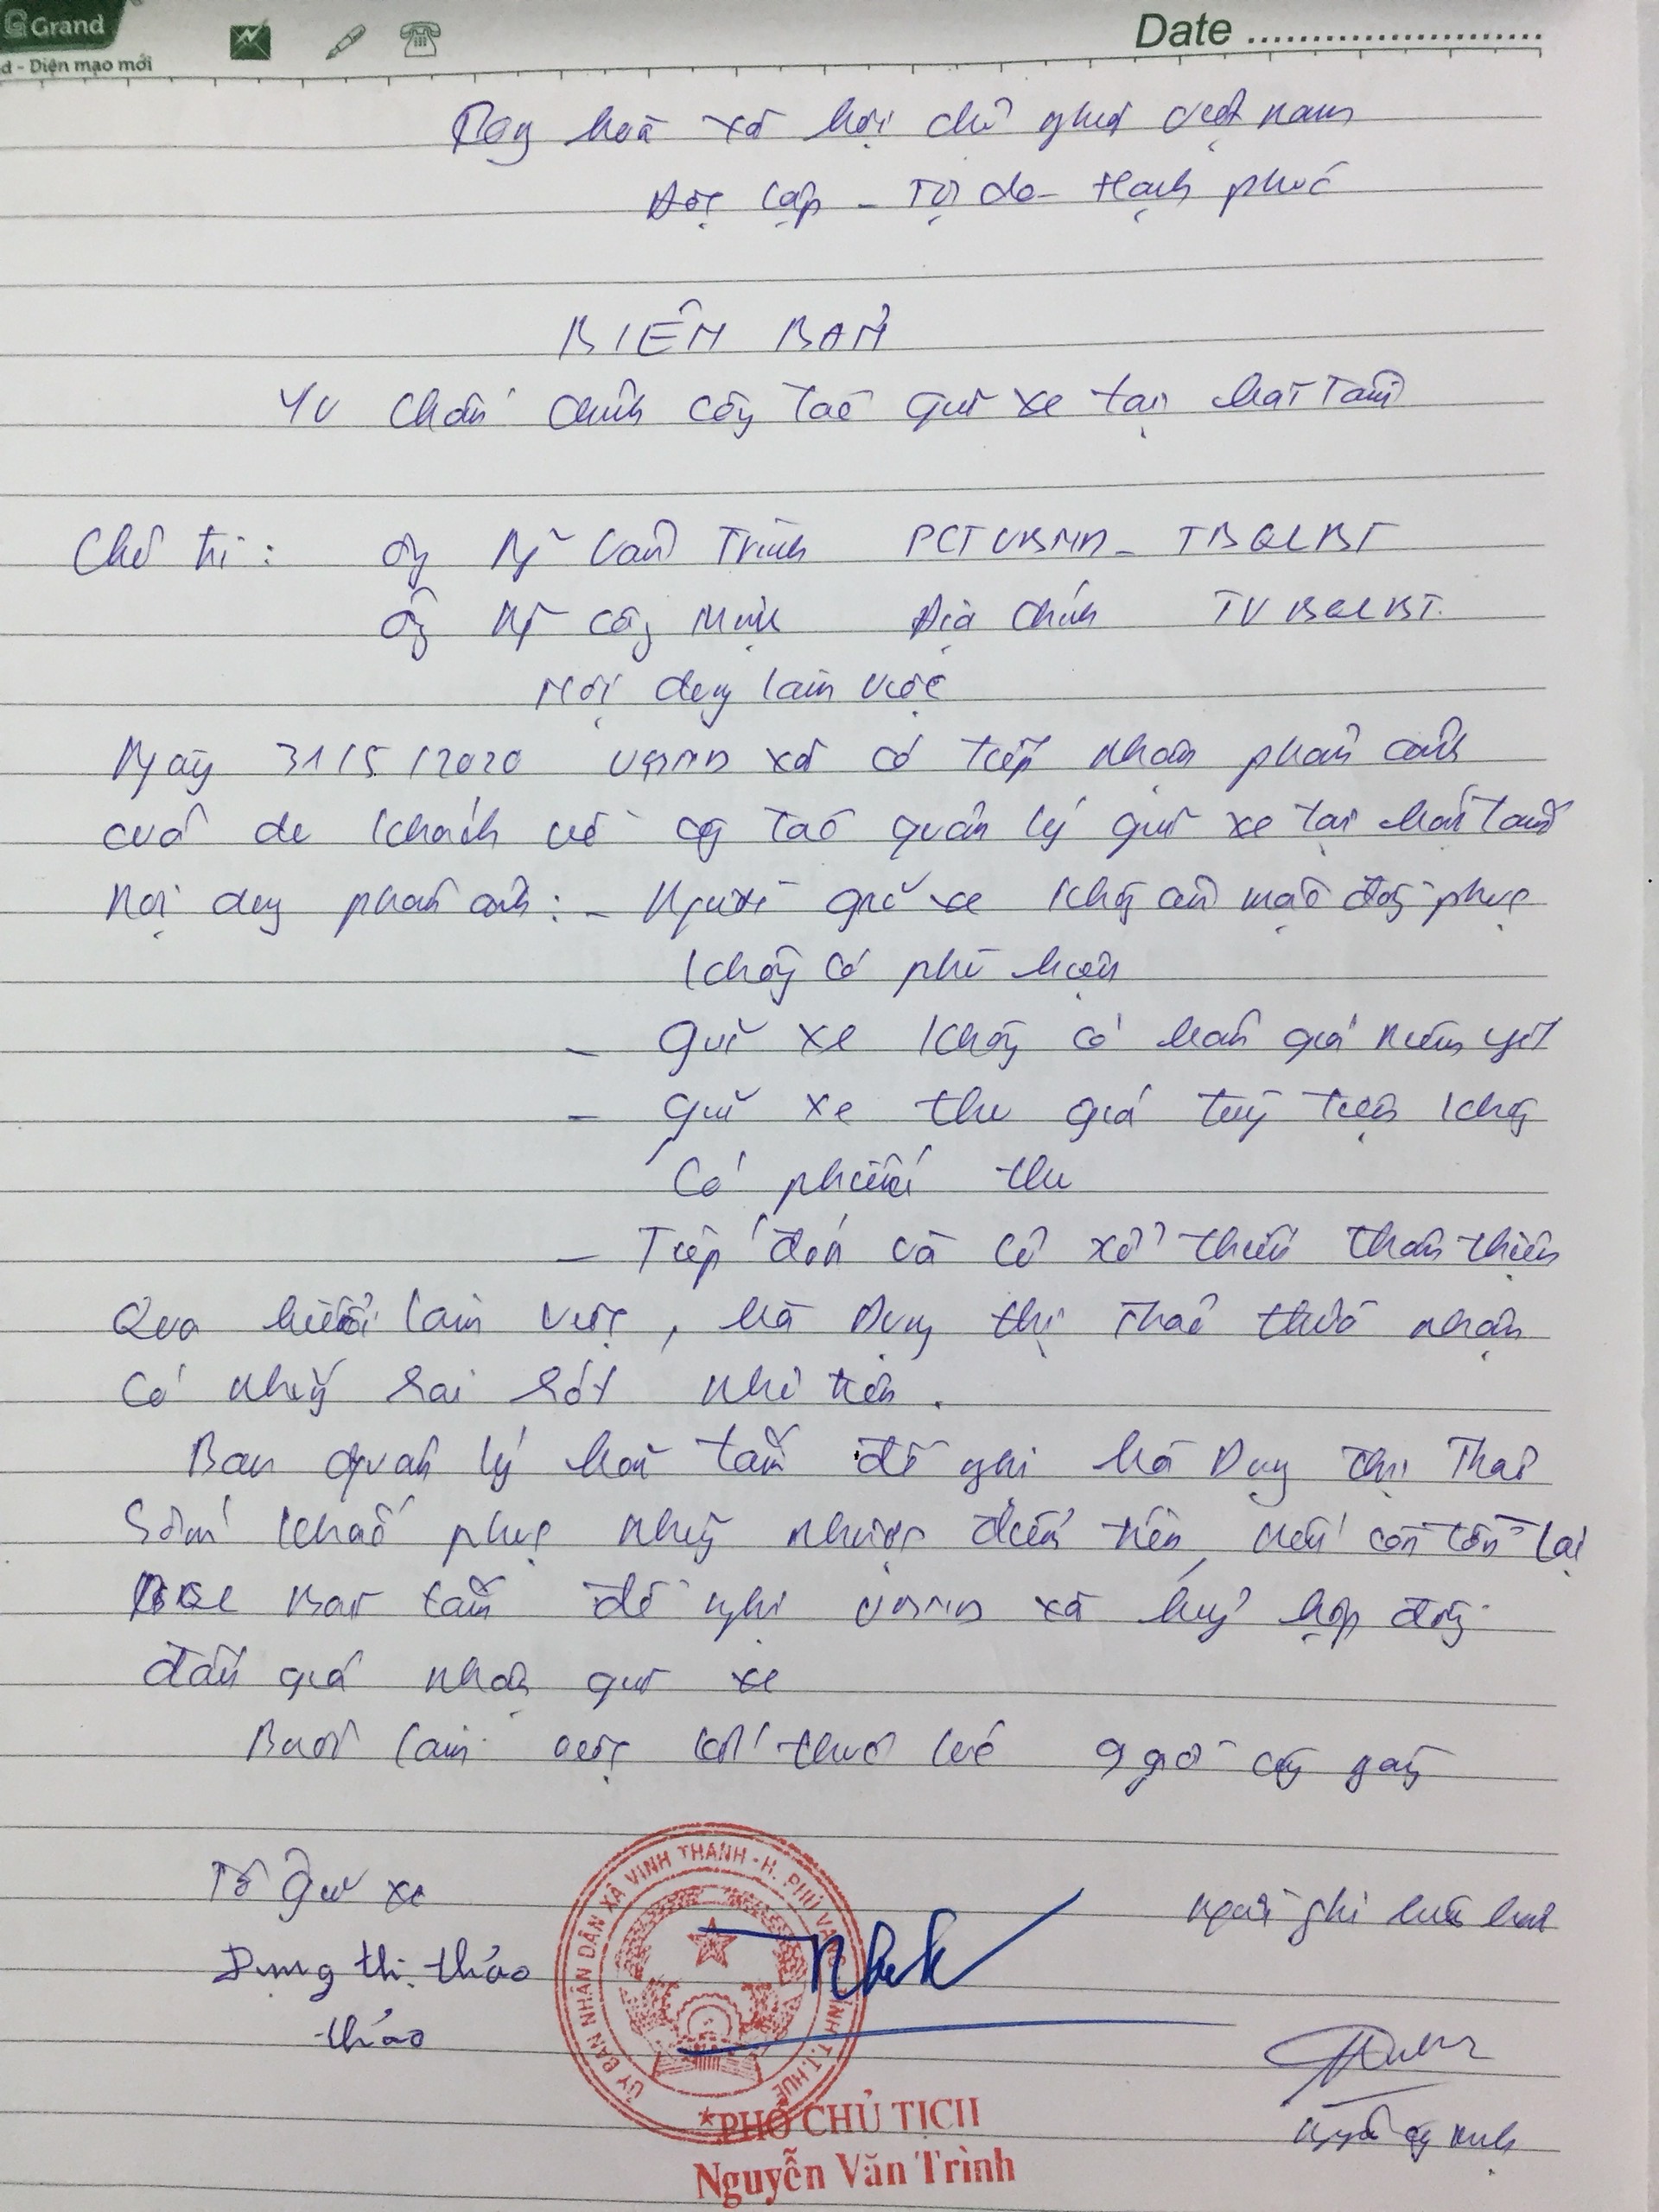 Grand
d - Diện mạo mới
Date
Cộng hoà xã hội chủ nghĩa Việt nam
Độc lập - Tự do - Hạnh phúc
BIÊN BẢN
V/v Chấn chỉnh công tác giữ xe tại bãi Tắm
Chủ trì: Ông Ng~ Văn Trình PCT UBND - TBQLBT
Ông Ng~ Công Mịnh Địa Chính TV BQLBT.
Nội dung làm việc
Ngày 31/5/2020 UBND xã có tiếp nhận phản ánh
của du khách về công tác quản lý giữ xe tại bãi tắm
Nội dung phản ánh: - Người giữ xe không ăn mặc đồng phục
không có phù hiệu
- Giữ xe không có bản giá niêm yết
- Giữ xe thu giá tuỳ tiện không
có phiếu thu
- Tiếp đón và cư xử thiếu thân thiện
Qua buổi làm việc, bà Dụng thị Thảo thừa nhận
có những sai sót như trên.
Ban quản lý bãi tắm đề nghị bà Dụng Thị Thảo
sớm khắc phục những nhược điểm trên, nếu còn tồn tại
BQL Bãi tắm đề nghị UBND xã huỷ hợp đồng
đấu giá nhận giữ xe
Buổi làm việc kết thúc lúc 9 giờ cùng ngày
Tổ Giữ xe
Người ghi biên bản
Dụng thị thảo
thảo
ỦY BAN NHÂN DÂN XÃ VINH THANH - H. PHÚ VANG TỈNH T.T.HUẾ
PHÓ CHỦ TỊCH
Nguyễn Văn Trình
Nguyễn Công Mịnh